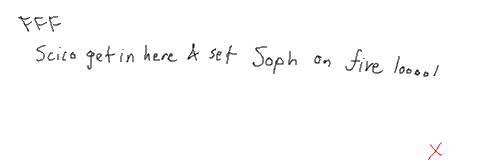 FFF
Scico get in here & set Soph on fire looool
X